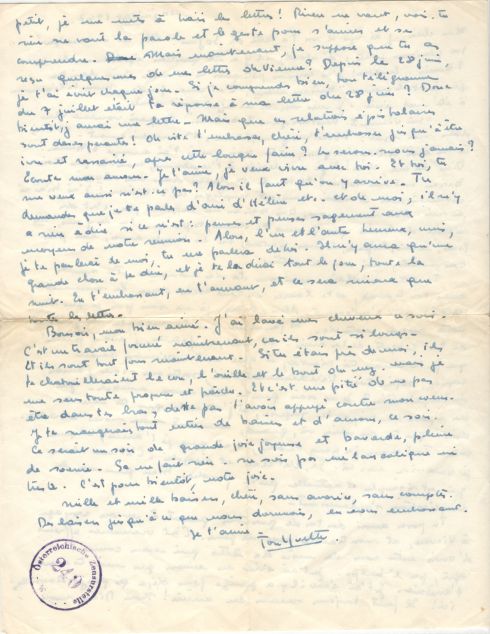 petit, je me mets à haïr les lettres! Rien ne vaut, vois-tu
rien ne vaut la parole et le geste pour s'aimer et se
comprendre. Mais maintenant, je suppose que tu as
reçu quelques unes de mes lettres de Vienne? Depuis le 28 juin
je t'ai écrit chaque jour. Si je comprends bien, ton télégramme
du 7 juillet était ta réponse à ma lettre du 28 juin? Donc
bientôt, j'aurai une lettre - Mais que ces relations épistolaires
sont désespérantes! Oh vite t'embrasser, chéri, t'embrasser jusqu'à être
ivre et rassasiée, après cette longue faim? Le serons-nous jamais?
Ecoute mon amour. Je t'aime, je veux vivre avec toi. Et toi, tu
me veux aussi n'est-ce pas? Alors il faut qu'on y arrive. Tu
demandes que je te parle d'ami d'Hélène et.. et de moi, il n'y
a rien à dire si ce n'est: penses et penses sagement aux
moyens de notre réunion. Alors, l'un et l'autre heureux, moi,
je te parlerai de moi, tu me parleras de toi. Il n'y aura qu'une
grande chose à te dire, et je te la dirai tout le jour, toute la
nuit. En t'embrassant, en t'aimant, et ce sera mieux que
toutes les lettres.
Bonsoir, mon bien aimé. J'ai lavé mes cheveux ce soir.
C'est un travail formé maintenant, car ils sont si longs -
Et ils sont tout fous maintenant. Si tu étais près de moi, ils
te chatouilleraient le cou, l'oreille et le bout du nez. mais je
me sens toute propre et fraîche. Et c'est une pitié de ne pas
être dans tes bras, de ne pas t'avoir appuyé contre mon coeur.
Je te mangerais tout entier de baisers et d'amour, ce soir.
Ce serait un soir de grande joie joyeuse et bavarde, pleine
de sourire. Ça ne fait rien. ne sois pas mélancolique ni
triste. C'est pour bientôt, notre joie.
Mille et mille baisers, chéri, sans avarice, sans compter.
Des baisers jusqu'à ce que nous dormions, en nous embrassant.
Je t'aime -
Ton Yvette.
Österreichische Zensurstelle